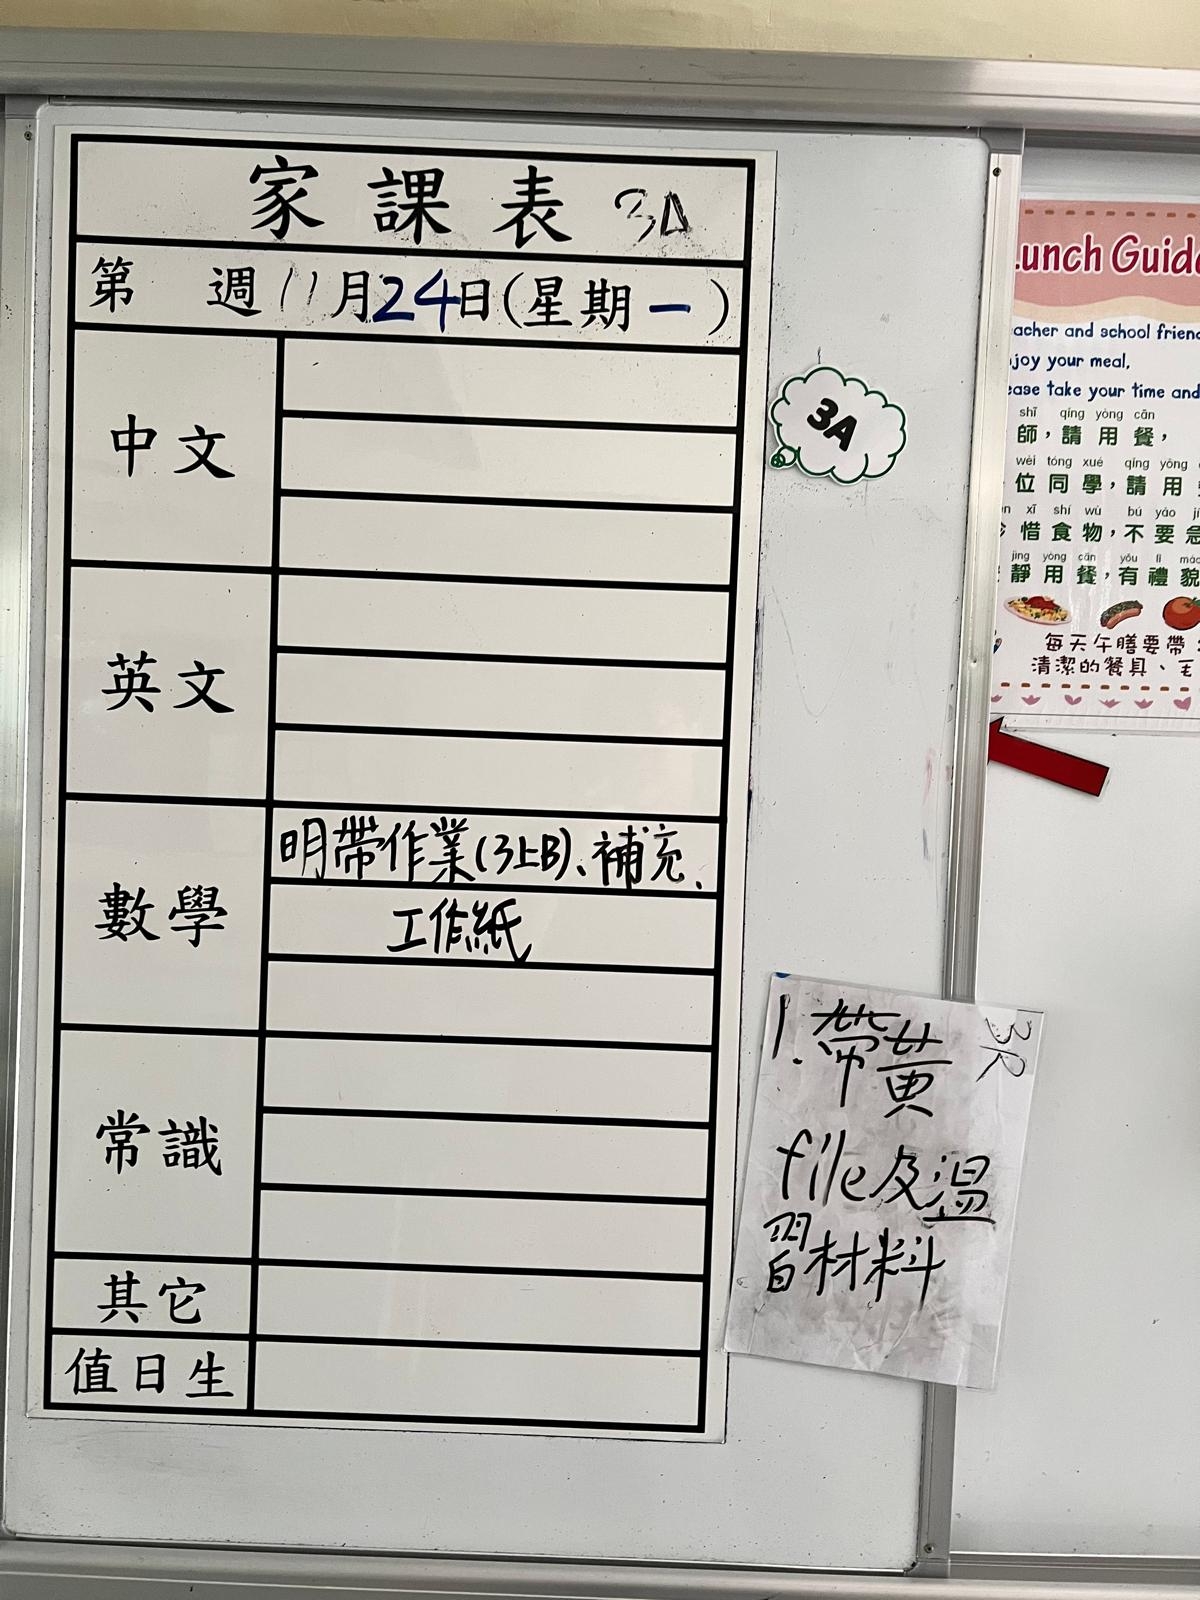 家課表 3A
第 週 11月24日(星期一)
中文
英文
數學
明帶作業(3上B)、補充、
工作紙
常識
其它
值日生
3A
1. 帶黄
file及温
習材料
Lunch Guide
eacher and school frien
njoy your meal,
ease take your time and
shī qíng yòng cān
師，請用餐，
wèi tóng xué qíng yòng
位同學，請用
xī shí wù bú yào jí
惜食物，不要急
jìng yòng cān yǒu lǐ mào
靜用餐，有禮貌
每天午膳要帶
清潔的餐具、毛